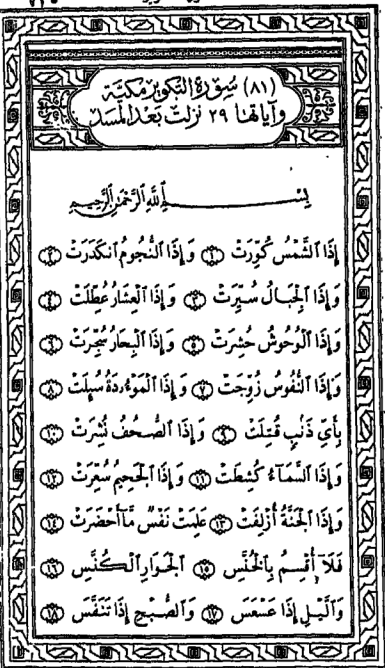 (٨١) سُورَةُ التَّكْوِيرِ مَكِّيَّة
وَآيَاتُهَا ٢٩ نَزَلَتْ بَعْدَ الْمَسَدِ
بِسْمِ اللَّهِ الرَّحْمَٰنِ الرَّحِيمِ
إِذَا ٱلشَّمْسُ كُوِّرَتْ ١ وَإِذَا ٱلنُّجُومُ ٱنكَدَرَتْ ٢
وَإِذَا ٱلْجِبَالُ سُيِّرَتْ ٣ وَإِذَا ٱلْعِشَارُ عُطِّلَتْ ٤
وَإِذَا ٱلْوُحُوشُ حُشِرَتْ ٥ وَإِذَا ٱلْبِحَارُ سُجِّرَتْ ٦
وَإِذَا ٱلنُّفُوسُ زُوِّجَتْ ٧ وَإِذَا ٱلْمَوْءُۥدَةُ سُئِلَتْ ٨
بِأَىِّ ذَنۢبٍ قُتِلَتْ ٩ وَإِذَا ٱلصُّحُفُ نُشِرَتْ ١٠
وَإِذَا ٱلسَّمَآءُ كُشِطَتْ ١١ وَإِذَا ٱلْجَحِيمُ سُعِّرَتْ ١٢
وَإِذَا ٱلْجَنَّةُ أُزْلِفَتْ ١٣ عَلِمَتْ نَفْسٌ مَّآ أَحْضَرَتْ ١٤
فَلَآ أُقْسِمُ بِٱلْخُنَّسِ ١٥ ٱلْجَوَارِ ٱلْكُنَّسِ ١٦
وَٱلَّيْلِ إِذَا عَسْعَسَ ١٧ وَٱلصُّبْحِ إِذَا تَنَفَّسَ ١٨